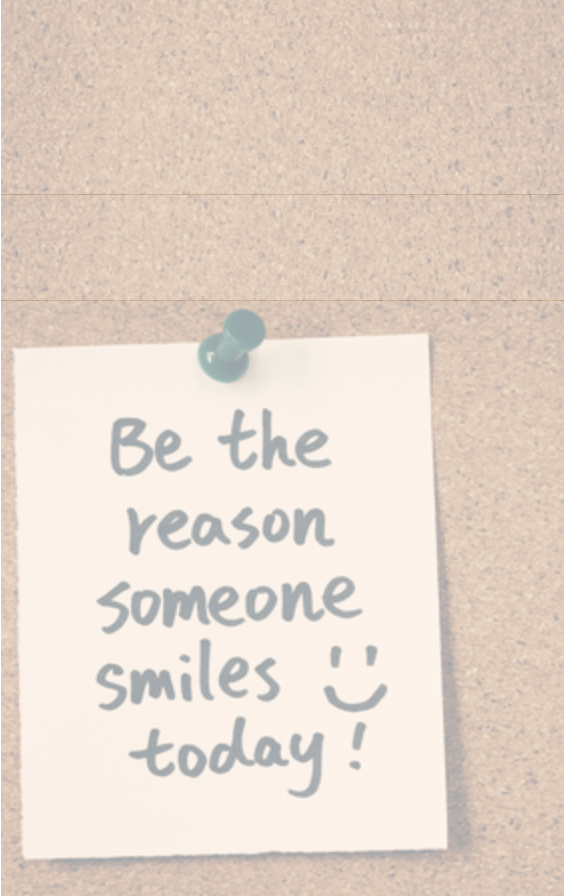 Be the
reason
someone
smiles
today!